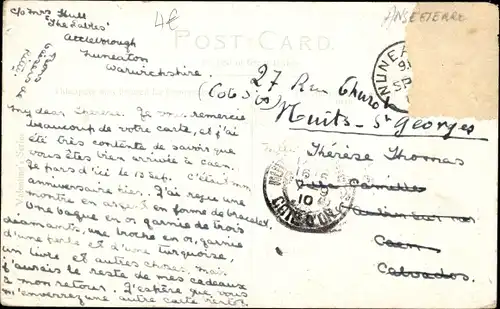 c/o Mrs Hull
"The Gables"
Attleborough
Nuneaton
Warwickshire.
4€
ANGLETERRE
POST CARD.
NUNEA
27 Rue Thurot
(Côte d'Or)
Nuits-St Georges
My dear Thérèse. Je vous remercie
beaucoup de votre carte, et j'ai
été très contente de savoir que
vous êtes bien arrivée à Caen.
Je pars d'ici le 13 Sep. C'était mon
anniversaire hier. J'ai reçu une
montre en argent en forme de bracelet,
Une bague en or garnie de trois
diamants, une broche en or, garnie
d'une perle et d'une turquoise,
un livre et autres choses, mais
j'aurais le reste de mes cadeaux
à mon retour. J'espère que vous
m'enverrez une autre carte
Mlle Thérèse Thomas
Caen
Calvados.
16
9
10
COTE D'OR
Valentine's Series